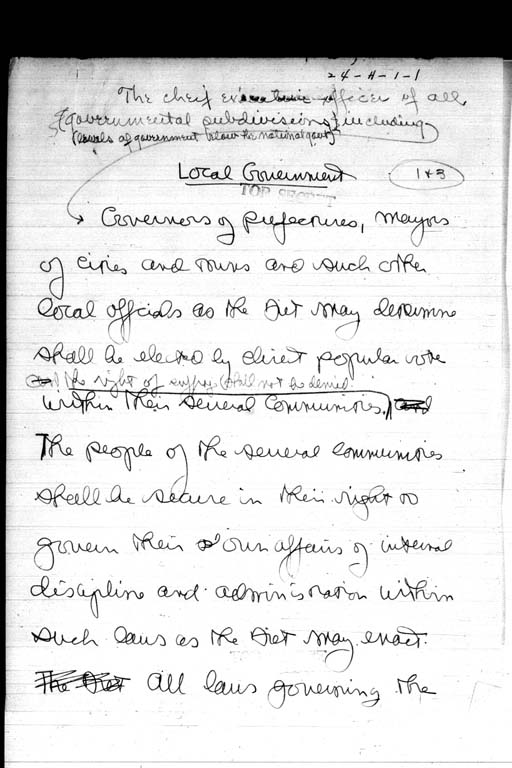 24-H-1-1
The cheif executive officer of all
governmental subdivisions, including
(levels of government below the national govt)
Local Government
1+3
TOP SECRET
Governors of prefectures, mayors
of cities and towns and such other
local officials as the Diet may determine
shall be elected by direct popular vote
and the right of suffrage shall not be denied
within their several communities. and
The people of the several communities
shall be secure in their right to
govern their own affairs of internal
discipline and administration within
such laws as the Diet may enact.
The Diet All laws governing the